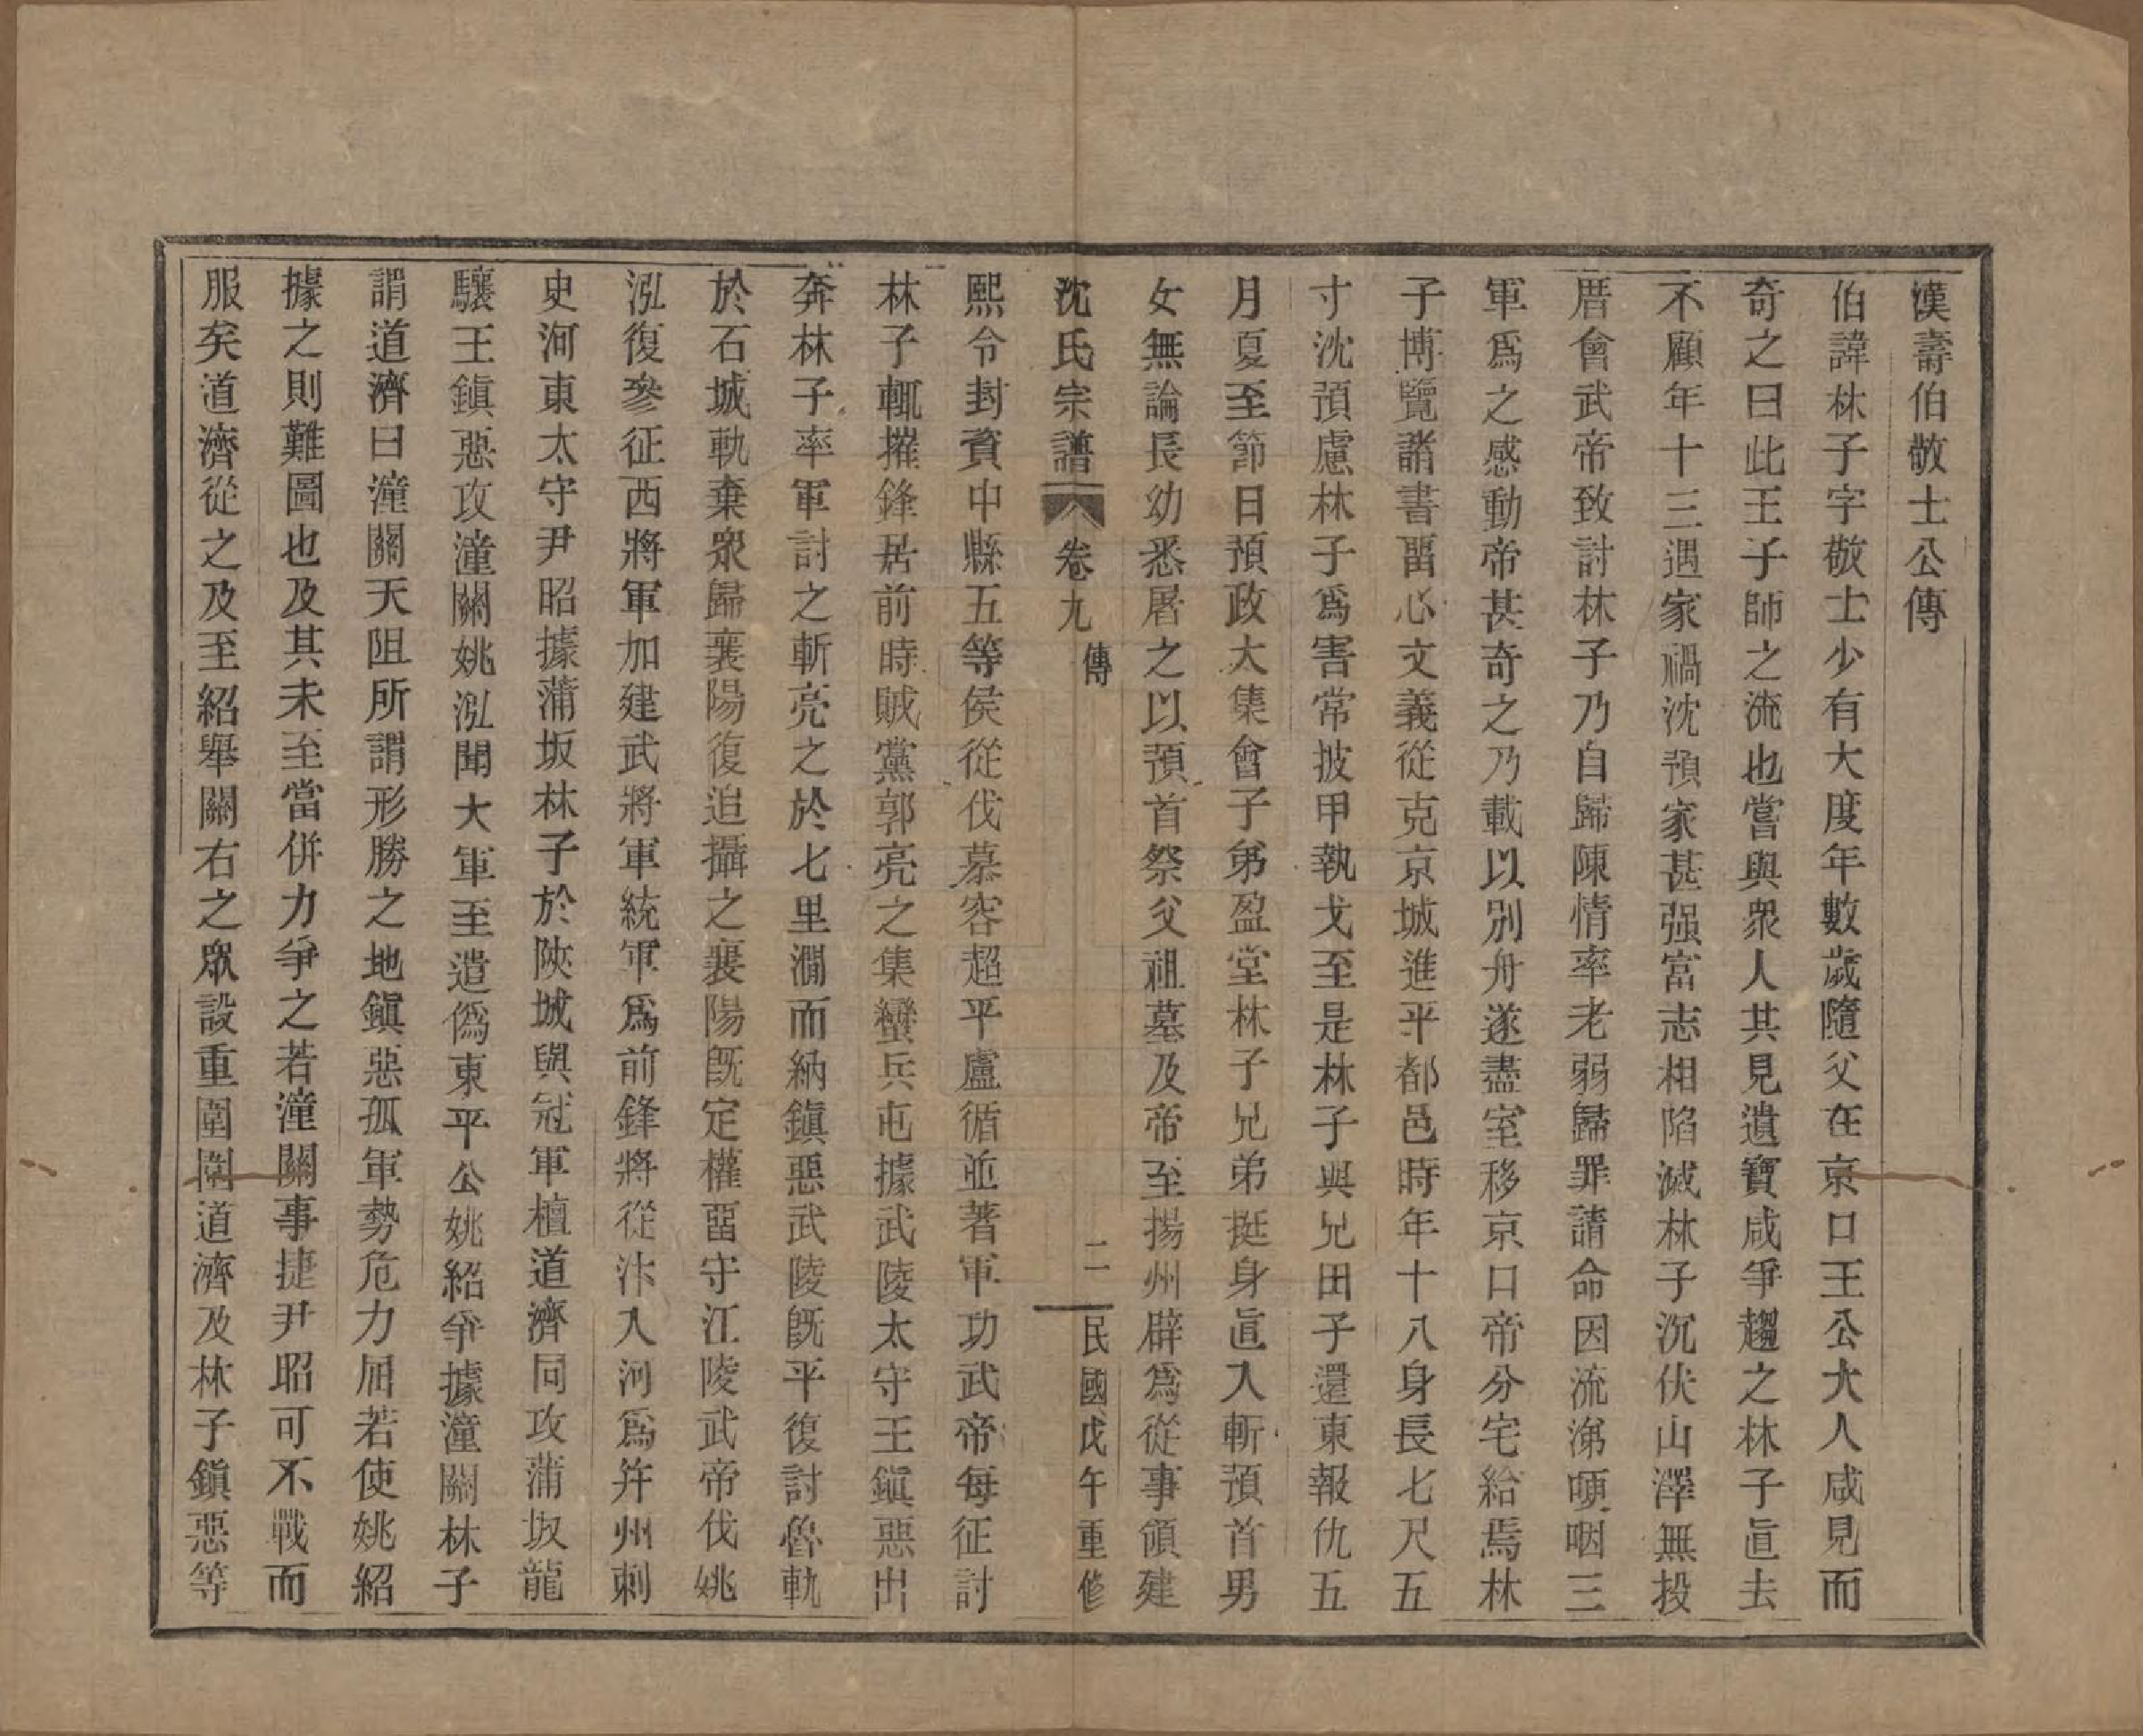 漢壽伯敬士公傳
伯諱林子字敬士少有大度年數歲隨父在京口王公大人咸見而
奇之曰此王子師之流也嘗與衆人共見遺寶咸爭趨之林子直去
不顧年十三遇家禍沈預家甚强富志相陷滅林子沉伏山澤無投
厝會武帝致討林子乃自歸陳情率老弱歸罪請命因流涕哽咽三
軍爲之感動帝甚奇之乃載以別舟遂盡室移京口帝分宅給焉林
子博覽諸書畱心文義從克京城進平都邑時年十八身長七尺五
寸沈預慮林子爲害常披甲執戈至是林子與兄田子還東報仇五
月夏至節日預政大集會子弟盈堂林子兄弟挺身直入斬預首男
女無論長幼悉屠之以預首祭父祖墓及帝至揚州辟爲從事領建
沈氏宗譜 卷九 傳 二 民國戊午重修
熙令封資中縣五等侯從伐慕容超平盧循並著軍功武帝每征討
林子輒摧鋒居前時賊黨郭亮之集蠻兵屯據武陵太守王鎭惡出
奔林子率軍討之斬亮之於七里澗而納鎭惡武陵旣平復討魯軌
於石城軌棄衆歸襄陽復追攝之襄陽旣定權畱守江陵武帝伐姚
泓復參征西將軍加建武將軍統軍爲前鋒將從汴入河爲幷州刺
史河東太守尹昭據蒲坂林子於陝城與冠軍檀道濟同攻蒲坂龍
驤王鎭惡攻潼關姚泓聞大軍至遣僞東平公姚紹爭據潼關林子
謂道濟曰潼關天阻所謂形勝之地鎭惡孤軍勢危力屈若使姚紹
據之則難圖也及其未至當併力爭之若潼關事捷尹昭可不戰而
服矣道濟從之及至紹舉關右之衆設重圍圍道濟及林子鎭惡等